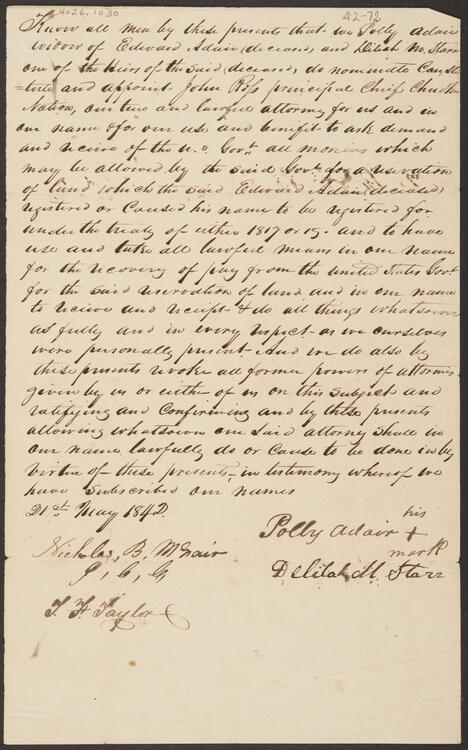 4026.1030
42-72
Know all men by these presents that we Polly Adair
widow of Edward Adair (deceased) and Delilah M. Starr
one of the Heirs of the said (deceased) do nominate Consti
=tute and appoint John Ross principal Chief Cherokee
Nation, our true and lawful attorney for us and in
our name & for our use and benifit to ask demand
and recive of the U. S Govt. all monies which
may be allowed by the said Govt. for a reservation
of land which the said Edward Adair (deceased)
registered or Caused his name to be registered for
under the treaty of either 1817 or 19. and to have
use and take all lawful means in our name
for the recovery of pay from the United States Govt
for the said reservation of land and in our name
to recive and receipt & do all things whatsoever
as fully and in every respect as we ourselves
were personally present And we do also by
these presents revoke all former powers of attornies
given by us or either of us on this subject and
ratifying and Confirming and by these presents
allowing whatsoever our said attorney shall in
our name lawfully do or Cause to be done in by
virtue of these presents, in testimony whereof we
have Subscribed our names
21st. May 1842.
his
Polly Adair +
mark
Nicholas, B, McNair
Delilah M. Starr
T. F. Taylor